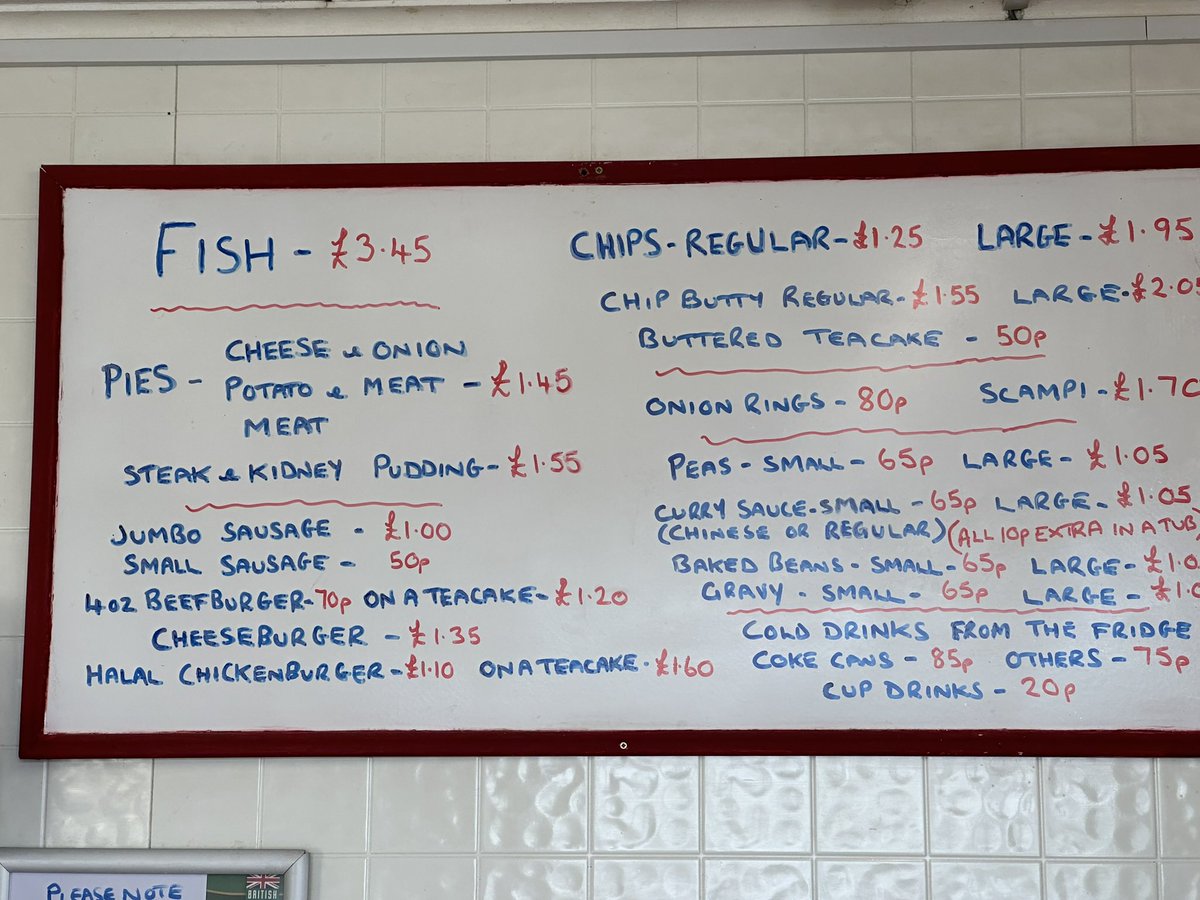 FISH - £3.45
PIES - CHEESE & ONION
POTATO & MEAT - £1.45
MEAT
STEAK & KIDNEY PUDDING - £1.55
JUMBO SAUSAGE - £1.00
SMALL SAUSAGE - 50p
4oz BEEFBURGER - 70p ON A TEACAKE - £1.20
CHEESEBURGER - £1.35
HALAL CHICKENBURGER - £1.10 ON A TEACAKE - £1.60
CHIPS - REGULAR - £1.25 LARGE - £1.95
CHIP BUTTY REGULAR - £1.55 LARGE - £2.05
BUTTERED TEACAKE - 50p
ONION RINGS - 80p SCAMPI - £1.70
PEAS - SMALL - 65p LARGE - £1.05
CURRY SAUCE - SMALL - 65p LARGE - £1.05
(CHINESE OR REGULAR) (ALL 10p EXTRA IN A TUB)
BAKED BEANS - SMALL - 65p LARGE -
GRAVY - SMALL - 65p LARGE -
COLD DRINKS FROM THE FRIDGE
COKE CANS - 85p OTHERS - 75p
CUP DRINKS - 20p
PLEASE NOTE
BRITISH